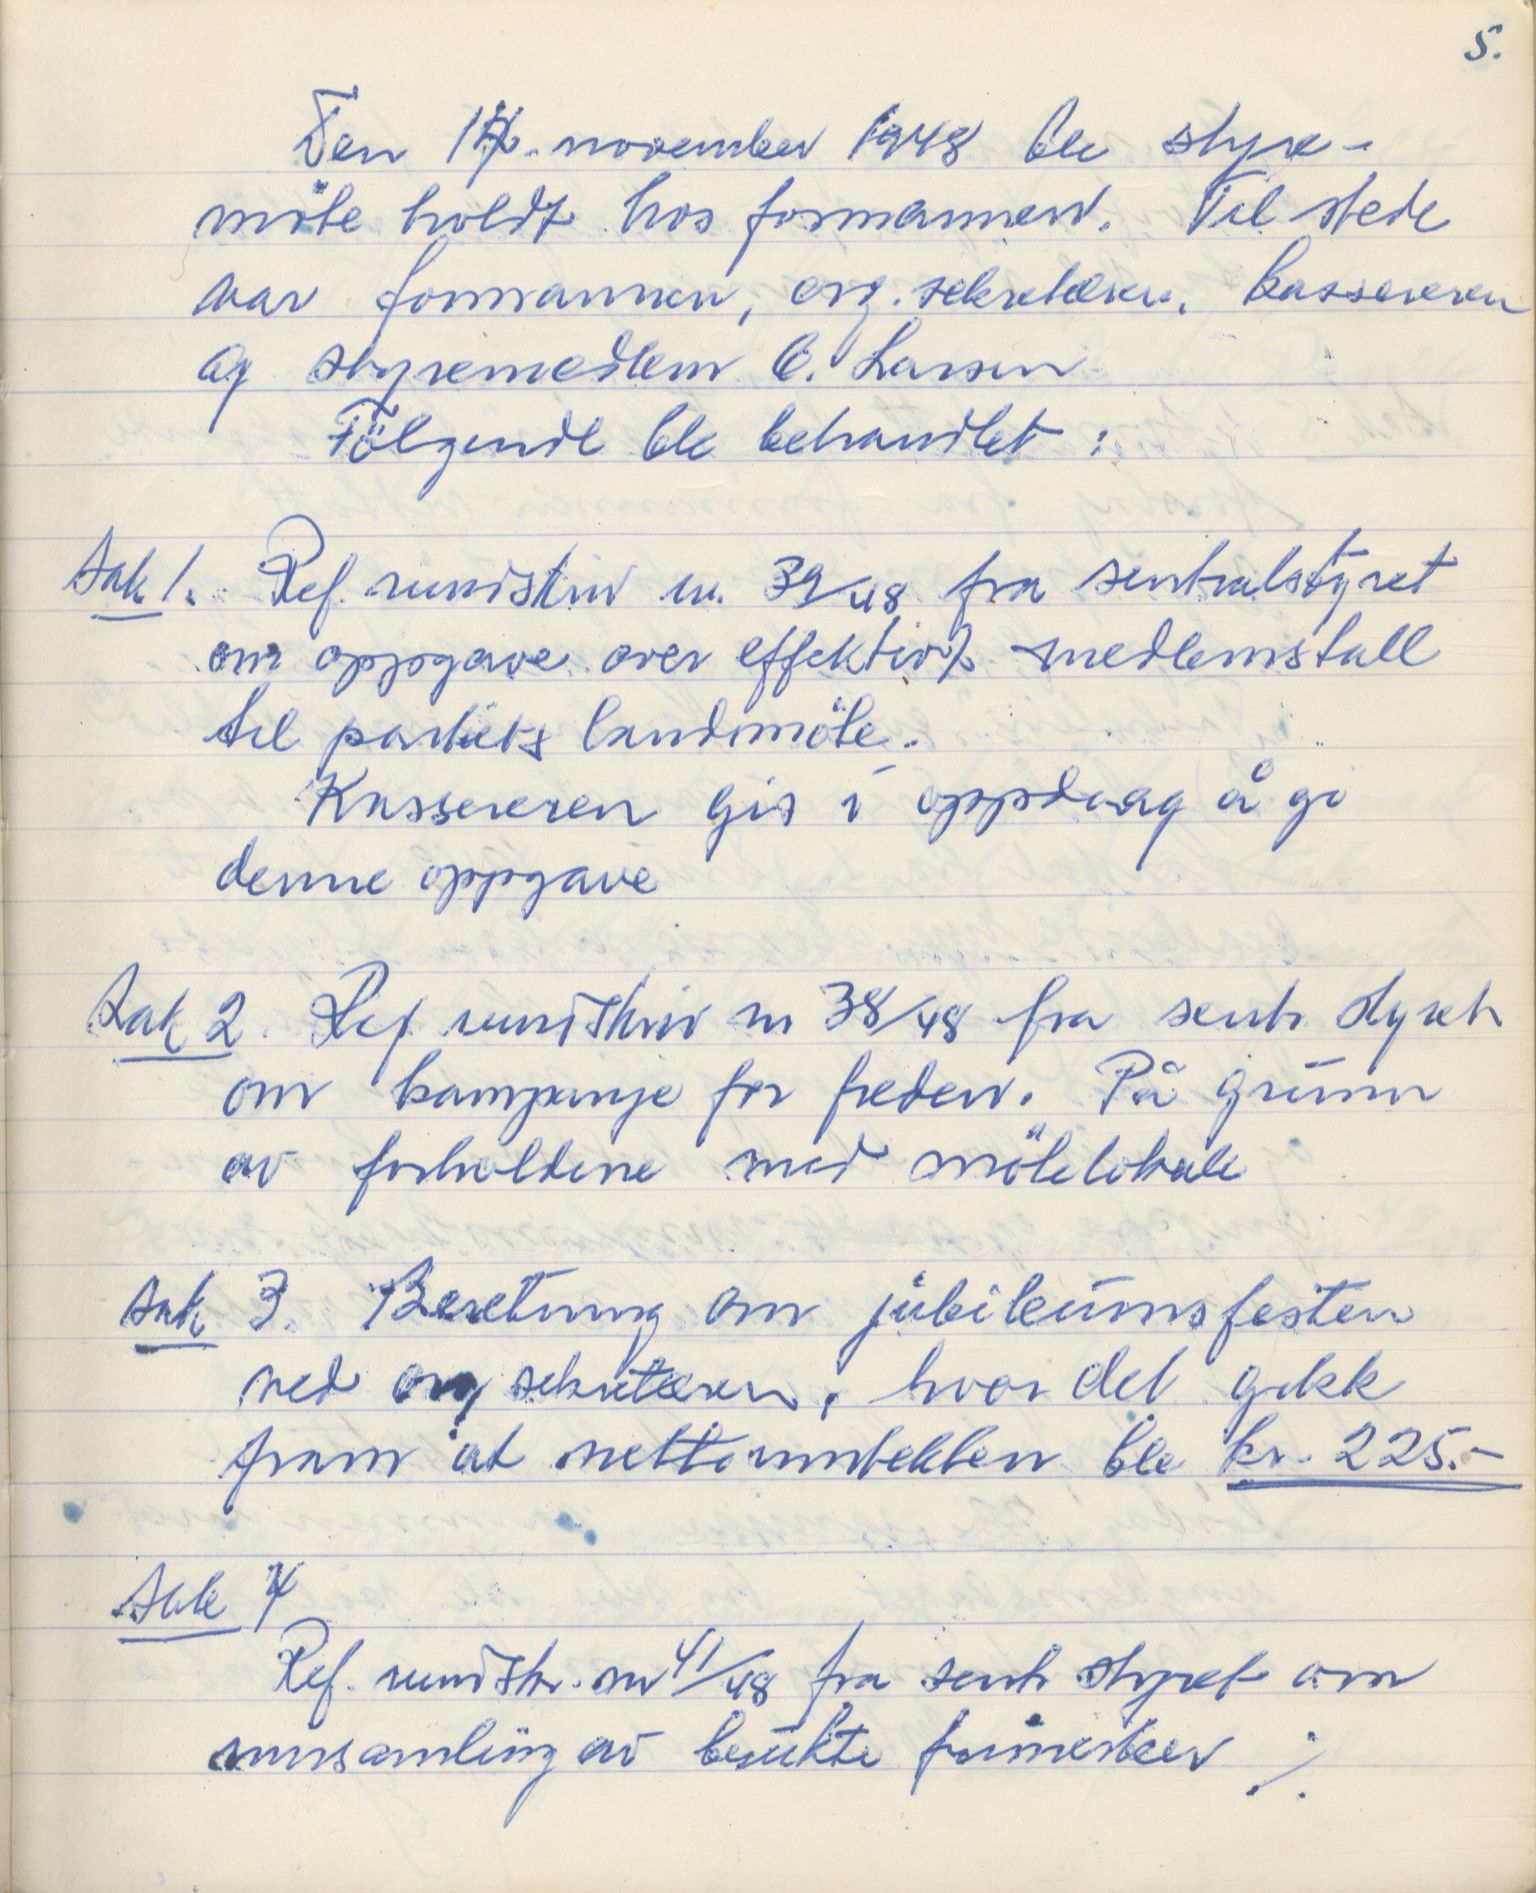 5.
Den november 1948 ble styre-
möte holdt hos formannen. Til stede
var formannen, org. sekretæren, kassereren
og styremedlem C. Larsen
Fölgende ble behandlet:
Sak 1. Ref. rundskriv nr. 39/48 fra sentralstyret
om oppgave over effektivt medlemstall
til partiets landsmöte.
Kassereren gis i oppdrag å gi
denne oppgave
Sak 2. Ref rundskriv nr 38/48 fra sentr. styret
om kampanje for freden. På grunn
av forholdene med mötelokale
Sak 3. Beretning om jubileumsfesten
ved org sekretæren, hvor det gikk
fram at nettoinntekten ble kr. 225.-
Sak 4
Ref. rundskr. nr 41/48 fra sentr styret om
innsamling av brukte frimerker ./.